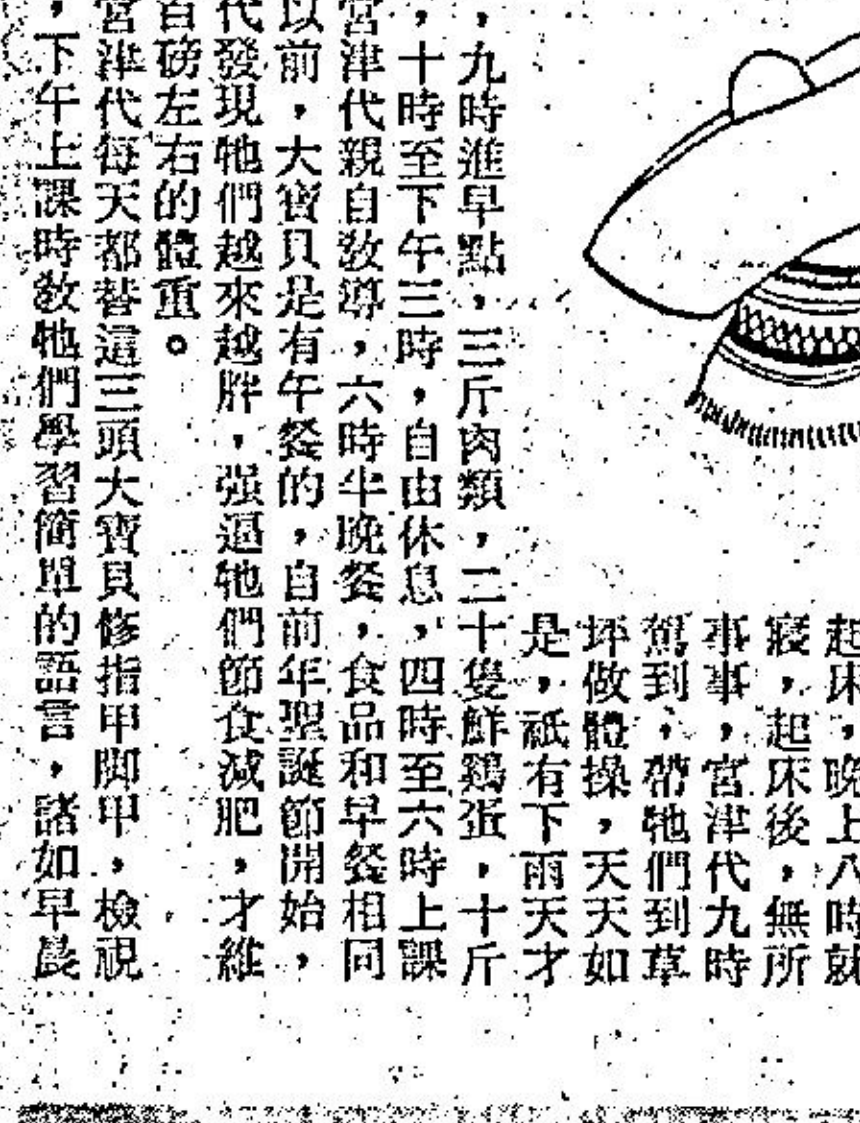 起床，晚上八時就
寢，起床後，無所
事事，宮津代九時
駕到，帶牠們到草
坪做體操，天天如
是，祇有下雨天才
，九時進早點，三斤肉類，二十隻鮮鷄蛋，十斤
，十時至下午三時，自由休息，四時至六時上課
宮津代親自敎導，六時半晚餐，食品和早餐相同
以前，大寶貝是有午餐的，自前年聖誕節開始，
代發現牠們越來越胖，强逼牠們節食減肥，才維
百磅左右的體重。
宮津代每天都替這三頭大寶貝修指甲脚甲，檢視
，下午上課時敎牠們學習簡單的語言，諸如早晨